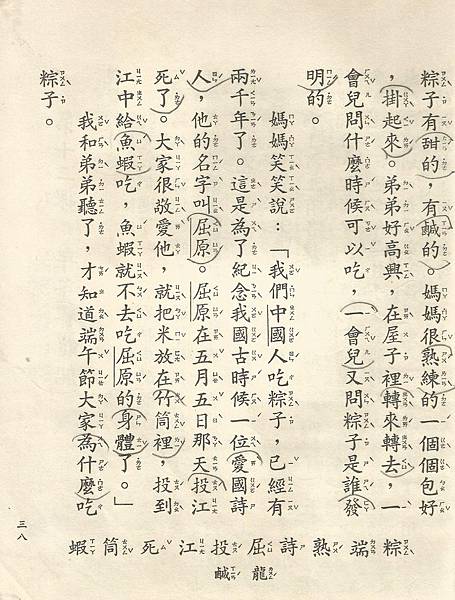 粽子有甜的,有鹹的。媽媽很熟練的一個個包好
,掛起來。弟弟好高興,在屋子裡轉來轉去,一
會兒問什麼時候可以吃,一會兒又問粽子是誰發
明的。
媽媽笑笑說:「我們中國人吃粽子,已經有
兩千年了。這是為了紀念我國古時候一位愛國詩
人,他的名字叫屈原。屈原在五月五日那天投江
死了。大家很敬愛他,就把米放在竹筒裡,投到
江中給魚蝦吃,魚蝦就不去吃屈原的身體了。」
我和弟弟聽了,才知道端午節大家為什麼吃
粽子。
粽端熟詩屈投江死筒蝦
龍鹹
三八